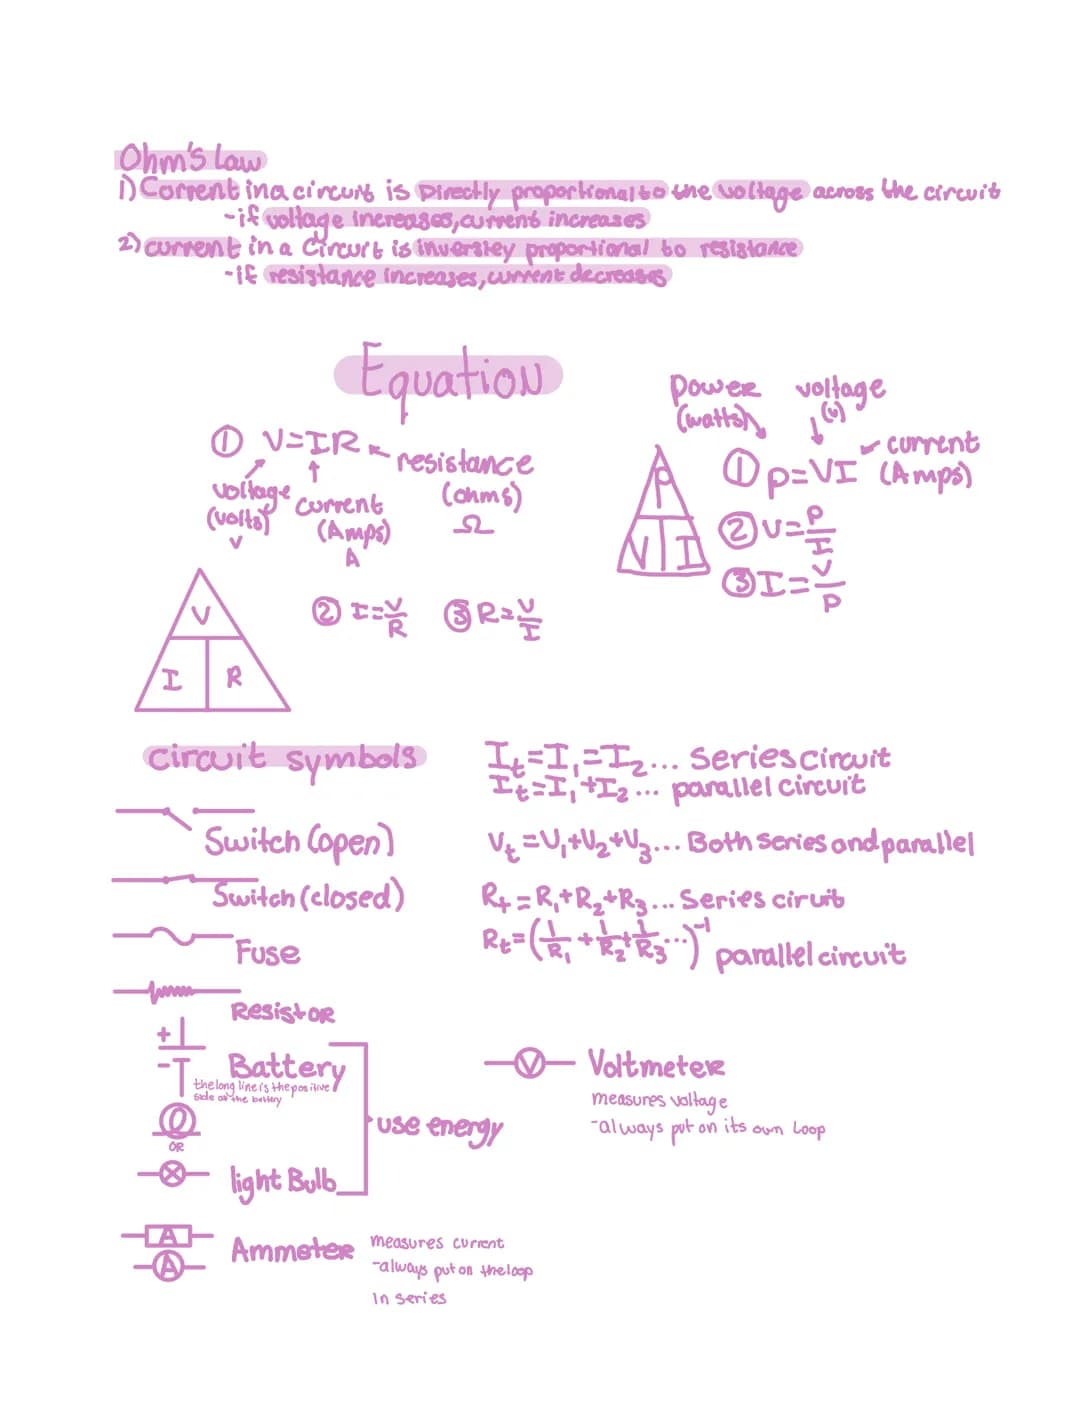 Ohm's Law
1) Current in a circuit is Directly proportional to the voltage across the circuit
-if voltage increases, current increases
2) current in a circuit is inversley proportional to resistance
-if resistance increases, current decreases
Equation
① V=IR
resistance
(ohms)
Ω
voltage
(volts)
V
current
(Amps)
A
power
(watts)
voltage
(v)
current
(Amps)
① P=VI
② V=P/I
③ I=V/P
P
V I
V
I R
② I=V/R ③ R=V/I
circuit symbols
Switch (open)
Switch (closed)
Fuse
Resistor
+
-
Battery
the long line is the positive
side of the battery
OR
light Bulb
use energy
A
A
Ammeter
measures current
-always put on the loop
in series
It=I1=I2... Series circuit
It=I1+I2... parallel circuit
Vt=V1+V2+V3... Both series and parallel
Rt=R1+R2+R3... Series ciruit
Rt=(1/R1+1/R2+1/R3...)⁻¹ parallel circuit
V
Voltmeter
measures voltage
-always put on its own loop